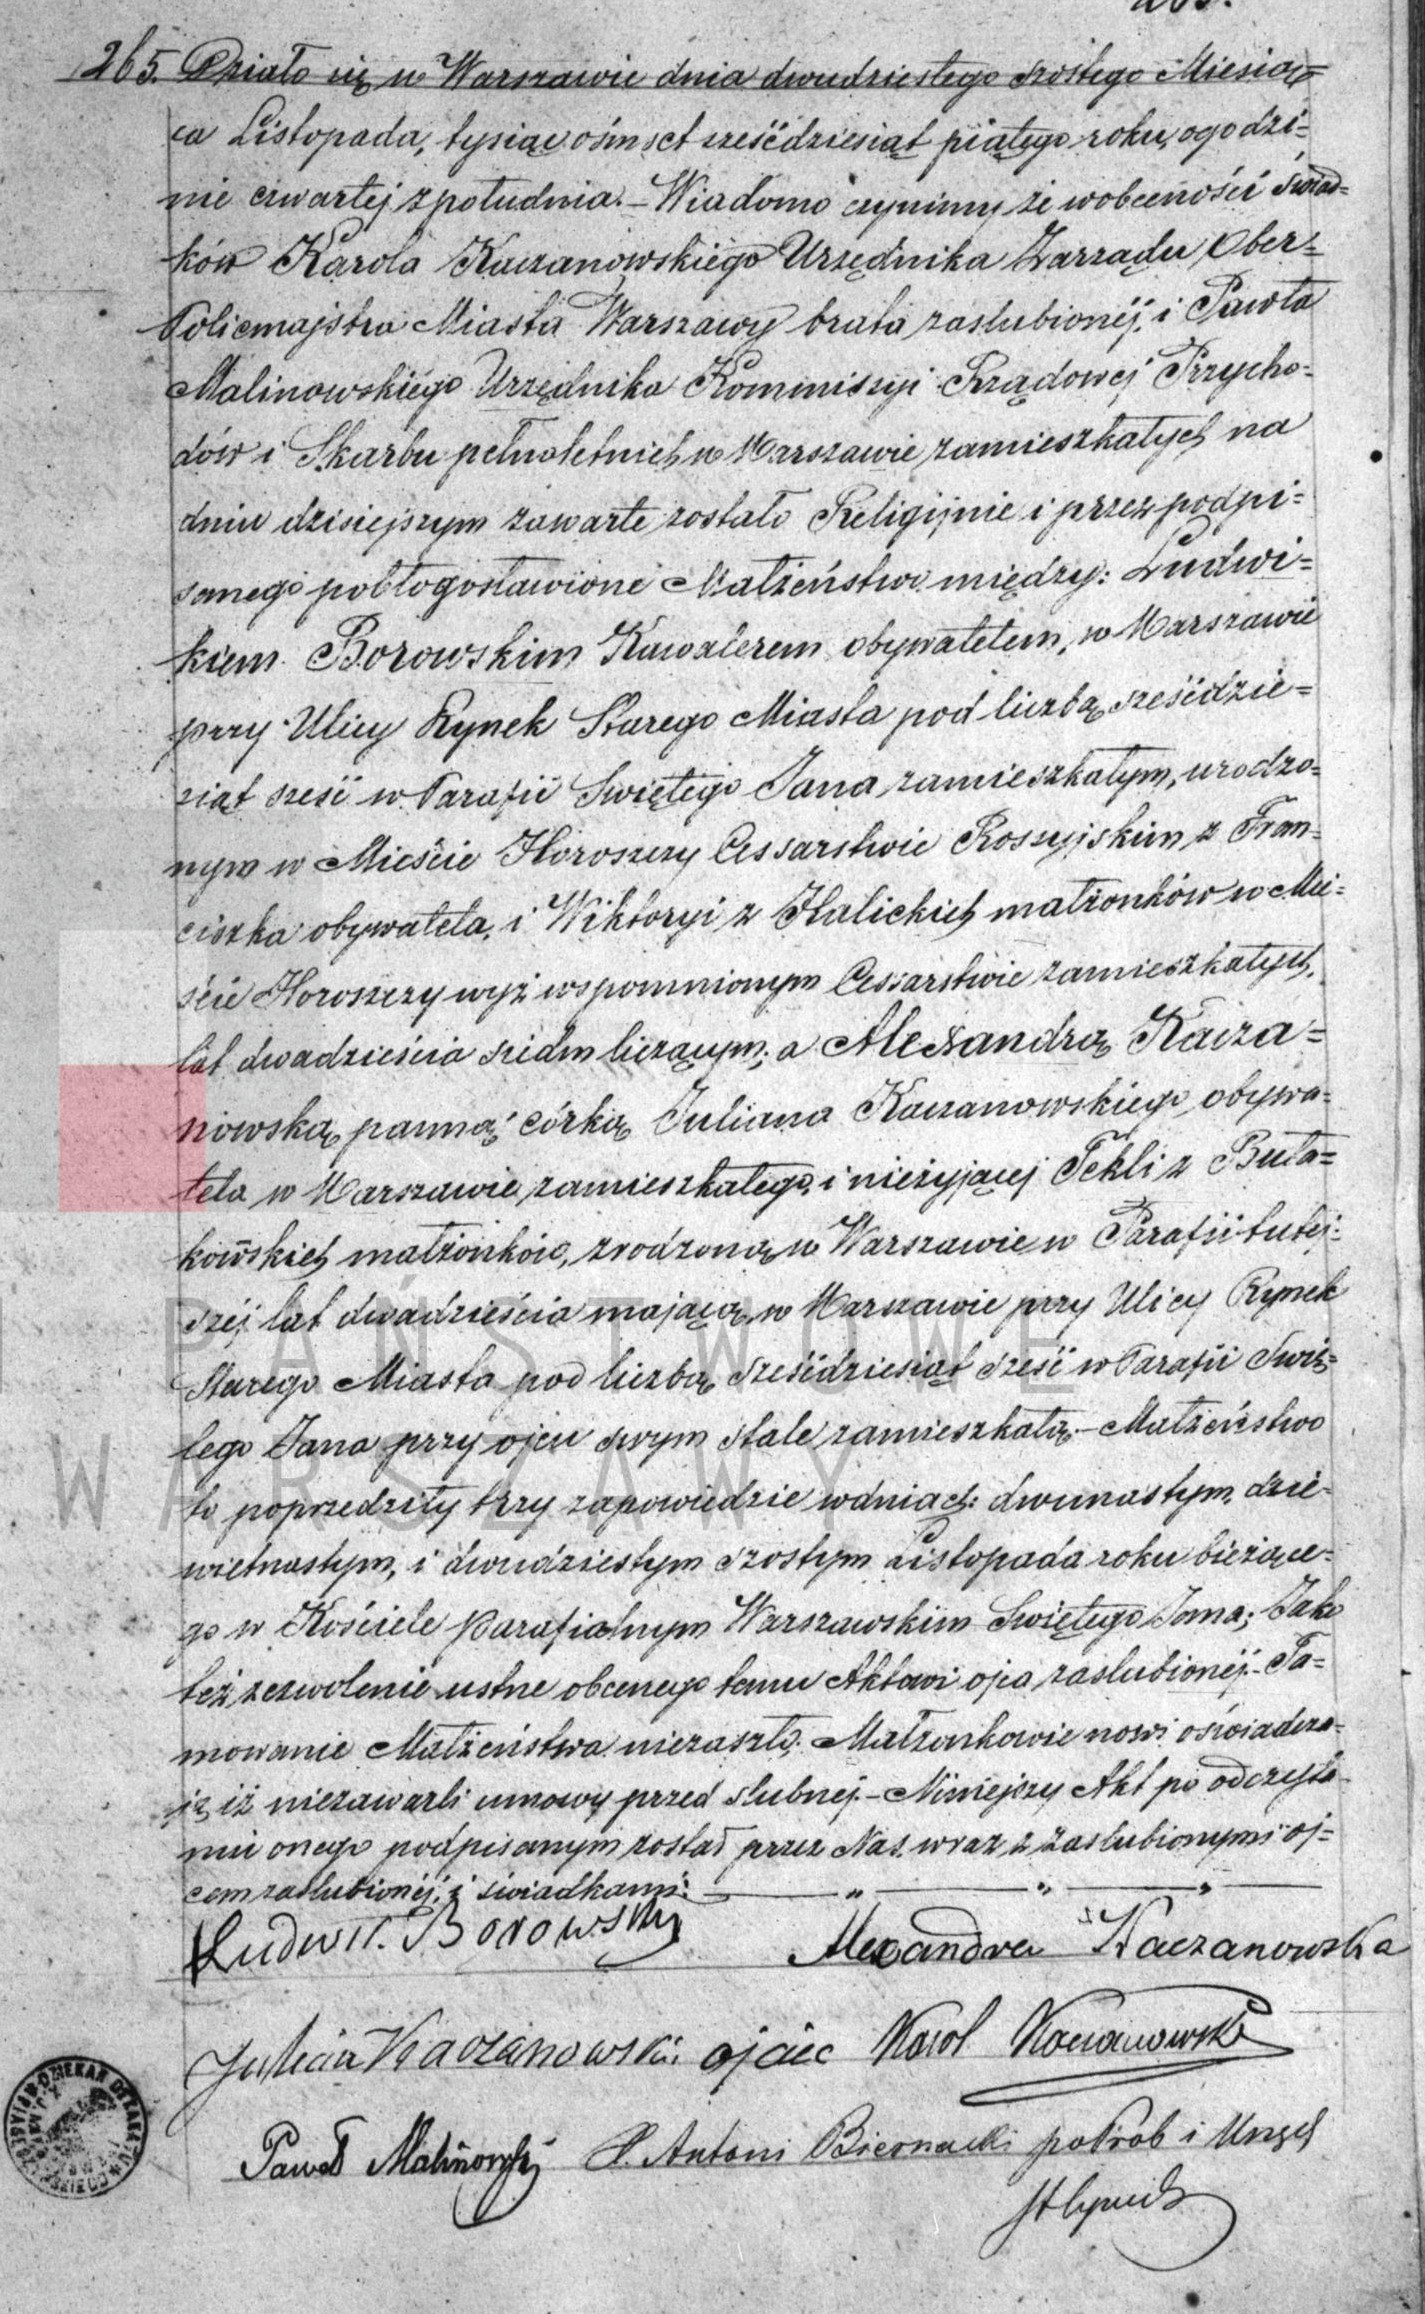 265. Działo się w Warszawie dnia dwudziestego szóstego Miesią=
ca Listopada, tysiąc ośmset sześćdziesiąt piątego roku, ogodzi=
nie czwartej z południa. – Wiadomo czynimy że wobecności Świad=
ków Karola Kaczanowskiego Urzędnika Zarządu Ober=
Policmajstra Miasta Warszawy brata zaslubionéj, i Pawła
Malinowskiego Urzędnika Kommissyi Rządowej Przycho=
dów i Skarbu pełnoletnich w Warszawie zamieszkałych na
dniu dzisiejszym zawarte zostało Religijnie i przez podpi=
sanego pobłogosławione Małżeństwo między: Ludwi=
kiem Borowskim Kawalerem obywatelem, w Warszawie
przy Ulicy Rynek Starego Miasta pod liczbą sześćdzie=
siąt sześć w Parafii Świętego Jana zamieszkałym, urodzo=
nym w Mieście Horoszczy Cessarstwie Rossyjskim z Fran=
ciszka obywatela, i Wiktoryi z Halickich małżonków w Mie=
ście Horoszczy wyż wspomnionym Cessarstwie zamieszkałych,
lat dwadzieścia siedm liczącym; a Alexandrą Kacza=
nowską panną, córką Juliana Kaczanowskiego obywa=
tela w Warszawie zamieszkałego, i nieżyjącej Tekli z Buła=
kowskich małżonków, zrodzoną w Warszawie w Parafii tutej=
széj lat dwadzieścia mającą, w Warszawie przy Ulicy Rynek
Starego Miasta pod liczbą sześćdziesiąt sześć w Parafii Świę=
tego Jana przy ojcu swym stale zamieszkałą. – Małżeństwo
to poprzedziły trzy zapowiedzie w dniach: dwunastym, dzie=
więtnastym, i dwudziestym szostym Listopada roku bieżące=
go w Kościele Parafialnym Warszawskim Świętego Jana; Jako
też zezwolenie ustne obecnego temu Aktowi ojca zaslubionéj. – Ta=
mowanie Małżeństwa niezaszło. Małżonkowie nowi oświadcza=
ją iż niezawarli umowy przed slubnéj. – Niniejszy Akt po odczyta=
niu onego podpisanym został przez Nas wraz z zaslubionymi oj=
cem zaslubionéj, i świadkami.
Ludwik Borowski Alexandra Kaczanowska
Julian Kaczanowski ojciec Karol Kaczanowski
Paweł Malinowski X. Antoni Biernacki po Prob i Urzęd
St Cywil
PAŃSTWOWE
WARSZAWY